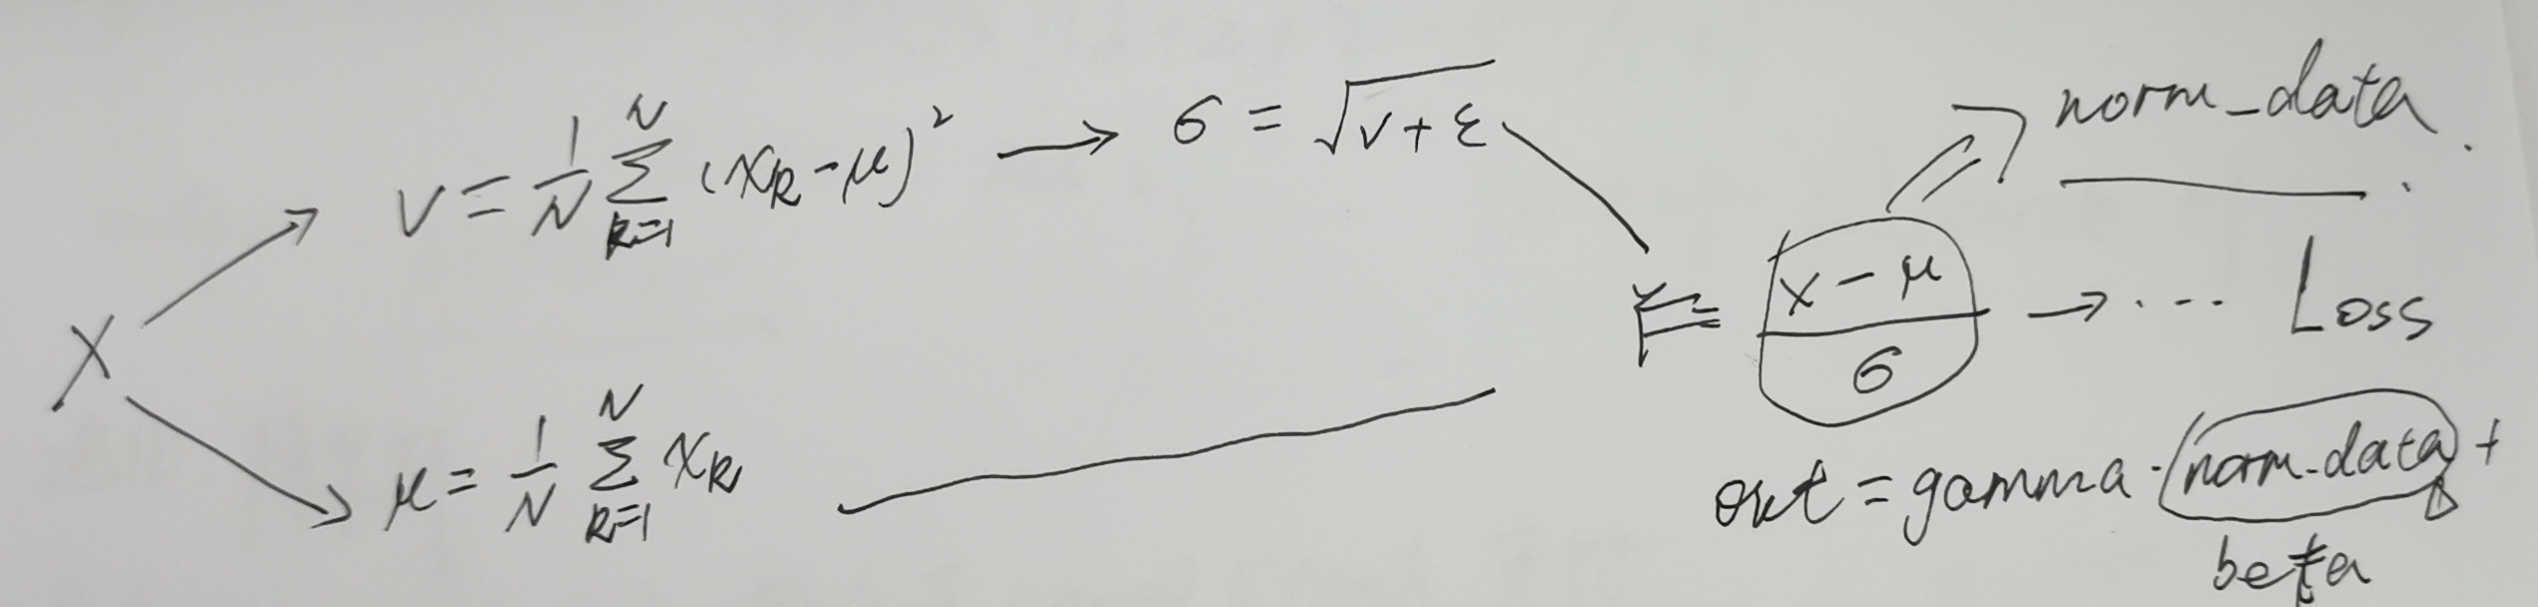 X
v = 1/N Σ_{k=1}^{N} (x_k - μ)² → σ = √(v + ε)
μ = 1/N Σ_{k=1}^{N} x_k
Y = (x - μ)/σ → ... Loss
norm_data.
out = gamma · (norm-data) +
beta